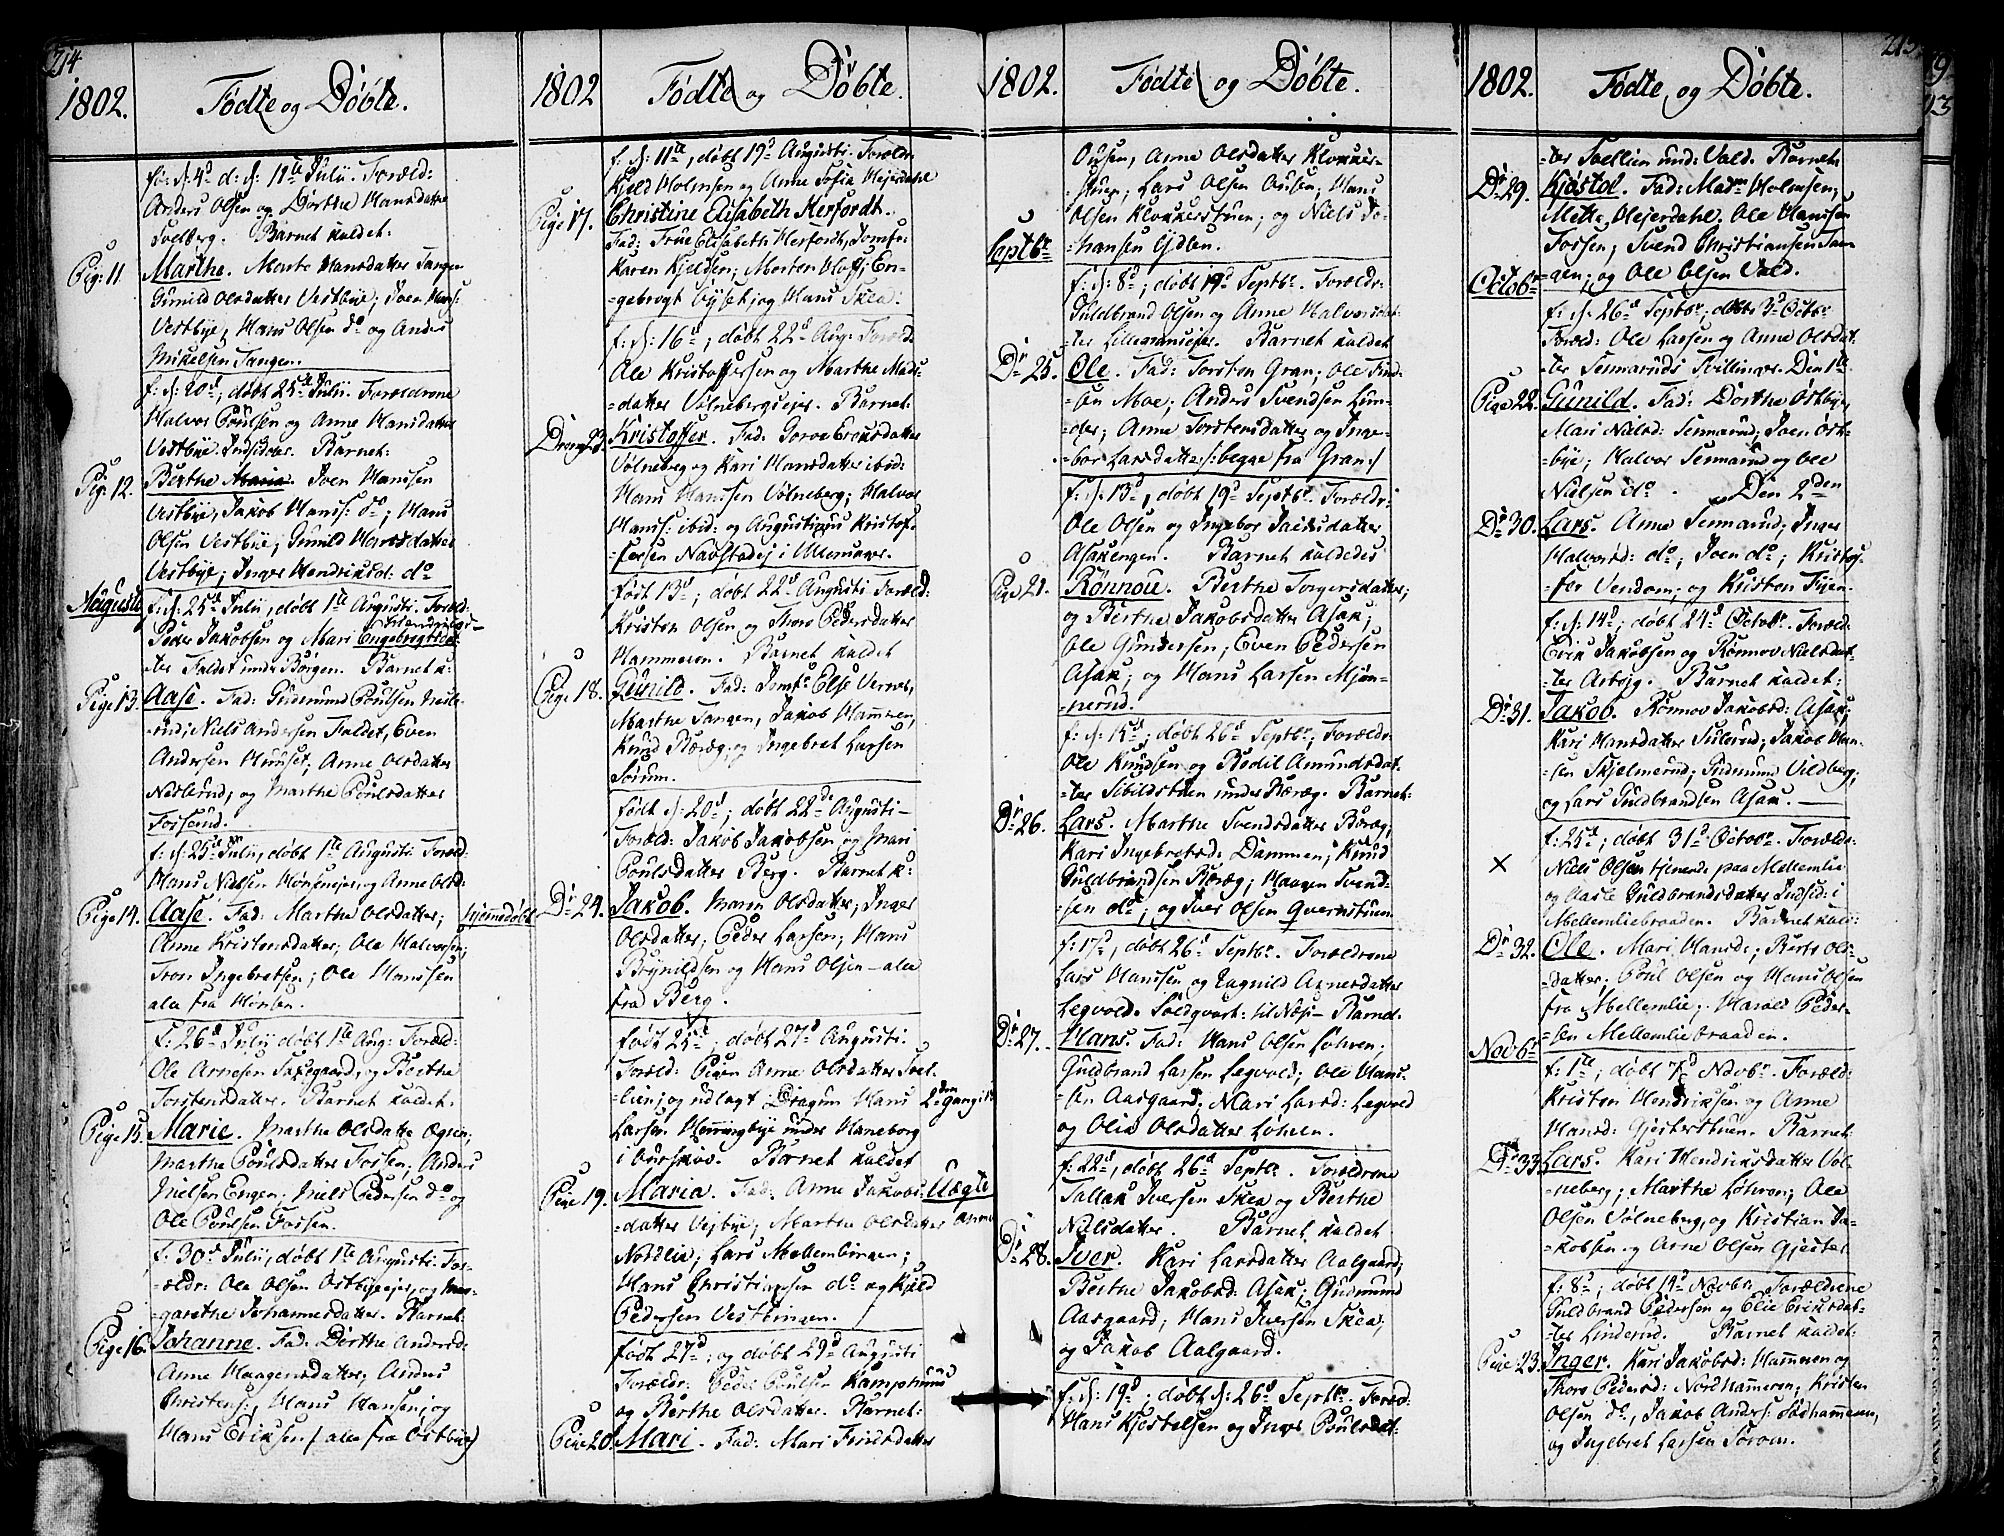 214
1802. Fødte og Døbte.
fø: d: 4d d: d: 11te Julii. Foræld:
Anders Olsen og Dorthe Hansdatter
Svelberg. Barnet kaldet:
Pig: 11. Marthe. Marte Hansdatter Tangen
Gunild Olsdatter Vestbye; Joen Hans:
Vestbye; Hans Olsen do og Anders
Mikelsen Tangen.
f: d: 20d, døbt 25de Julii. Forældrene
Halvor Poulsen og Anne Hansdatter
Vestbye Indsidder. Barnet:
Pig: 12. Berthe Maria. Joen Hanssen
Vestbye, Jakob Hanss: do; Hans
Olsen Vestbye; Gunild Hansdatter
Vestbye; Inger Hendriksd: do
Augusti f: d: 25d Julii, døbt 1te Augusti. Foræld:
Peder Jakobsen og Mari Engebrigtsdat-
ter Faldet under Børgen. Barnet k:
Pige 13. Aase. Fad: Gudmund Poulsen
rud; Niels Andersen Faldet, Even
Andersen Huuset; Anne Olsdatter
Neslerud; og Marthe Poulsdatter
Fosserud.
f: d: 25d Julii, døbt 1te Augusti. Foræld:
Hans Nielsen Hønsenejer, og Anne Olsd:
Pige 14. Aase. Fad: Marthe Olsdatter; hjemmedøbt
Anne Kristensdatter; Ole Halvorsen;
Tron Ingebretsen; Ole Hanssen
ale fra Hønsen.
f: 26d Julii døbt 1te Aug: Foræld:
Ole Arnesen Faxegaard, og Berthe
Torstensdatter. Barnet kaldet:
Pige 15. Marie. Marthe Olsdatter Ogsen;
Marthe Poulsdatter Fossen; Anders
Nielsen Engen; Niels Pedersen do og
Ole Poulsen Fossen.
f: 30d Julii, døbt 1te Augusti. For-
ældr: Ole Olsen Ostbyeejer, og Mar-
garethe Johannesdatter. Barnet:
Pige 16. Johanne. Fad: Derthe Andersd:
Anne Haagensdatter; Anders
Christens:; Hans Hansen; og
Hans Eriksen /: alle fra Ostbye/
1802 Fødte og Døbte.
f: d: 11te, døbt 19d Augusti. Foreldr:
Kjeld Holmsen og Anne Sofia Hejerdahl
Pige 17. Christine Elisabeth Herfordt.
Fad: Frue Elisabeth Herfordt, Jomfr:
Karen Kjeldsen; Morten Hoff; En-
gebregt Eyset, og Hans Skea:
f: d: 16d; døbt 22d Aug: Foræld:
Ole Kristoffersen og Marthe Mads-
datter Vølnebergsejer. Barnet:
Dreng 23. Kristoffer. Fad: Goroe Eriksdatter
Vølneberg og Kari Hansdatter ibid:
Hans Hanssen Vølneberg; Halvor
Hanss: ibid: og Augustinus Kristof-
fersen Navstadej i Ullensager.
født 13d, døbt 22d Augusti. Foræld:
Kristen Olsen og Thore Pedersdatter
Hammeren. Barnet kaldet
Pige 18. Gunild. Fad: Jomfr: Else Vernes,
Marthe Tangen, Jakob Hammer,
Knud Boræg, og Ingebret Larsen
Sørum.
født d: 20d; døbt 22de Augusti—
Foræld: Jakob Jakobsen og Mari
Poulsdatter Berg. Barnet k:
Dr 24. Jakob. Maren Olsdatter; Inger
Olsdatter; Peder Larsen; Hans
Brynildsen og Hans Olsen — ale
fra Berg.
født 25d; døbt 27d Augusti.
Foræld: Pigen Anne Olsdatter Svel-
lien; og udlagt: Dragun Hans 2den gang:
Larsen Henningbye under Haneborg
i Aurskov. Barnet kaldet
Pige 19. Maria. Fad: Anne Jakobs: Uægte
datter Vejbye; Marthe Olsdatter
Nordlie; Lars Mellembingen;
Hans Christiansen do og Kjeld
Pedersen Vestbingen.
født 27d; og døbt 29d Augusti
Forældr: Peder Poulsen Kamphuus
og Berthe Olsdatter. Barnet:
Pige 20. Mari. Fad: Mari Findsdatter
1802. Fødte og Døbte.
Ousen, Anne Olsdatter Klokker-
stuen; Lars Olsen Ousen; Hans
Olsen Klokkerstuen; og Niels Jo-
Septbr hansen Ødlen.
f: d: 8d; døbt 19d Septbr. Foreldr:
Guldbrand Olsen og Anne Halvorsdat-
ter Lillemoniejer. Barnet kaldet
Dr 25. Ole. Fad: Torsten Gran; Ole Find-
sen Moe; Anders Svendsen Lun-
der; Anne Torstensdatter og Inge-
bor Larsdatter /: begge fra Gran:/
f: d: 13d, døbt 19d Septbr. Forældr:
Ole Olsen og Ingebor Jakobsdatter
Asakengen. Barnet kaldedes
Pige 21. Rønnou. Berthe Torgersdatter;
og Berthe Jakobsdatter Asak;
Ole Gundersen; Even Pedersen
Asak; og Hans Larsen Mjøn-
nerud.
f: d: 15d; døbt 26d Septbr; Forældr:
Ole Knudsen og Bodil Amundsdat-
ter Sibildstuen under Boræg. Barnet:
Dr 26. Lars. Marthe Svendsdatter Boræg;
Kari Ingebretsd: Dammen; Knud
Guldbrandsen Boræg; Haagen Svend-
sen do; og Iver Olsen Qvernstuen.
f: 17d, døbt 26d Septbr. Forældrene
Lars Hanssen og Ragnild Arnesdatter
Legvold. Soldqvart: til Næs — Barnet:
Dr 27. Hans. Fad: Hans Olsen Lohren;
Guldbrand Larsen Legvold; Ole Hans-
sen Aasgaard; Mari Larsd: Legvold
og Olia Olsdatter Lohren.
f: 22d, døbt 26d Septbr. Forældrene
Tallak Iversen Skea og Berthe
Nielsdatter. Barnet kaldet
Dr 28. Iver. Kari Larsdatter Aalgaard;
Berthe Jakobsd: Asak; Gudmund
Aasgaard; Hans Iversen Skea;
og Jakob Aalgaard.
f: d: 19d; døbt d: 26d Septbr. Foræld:
Hans Kjostelsen og Inger Poulsdat-
215
1802. Fødte og Døbte.
ter Svellien und: Vald. Barnet:
Dr 29. Kjøstol. Fad: Madm Holmsen;
Mette Hejerdahl; Ole Hanssen
Fossen; Svend Christiansen Tan-
gen; og Ole Olsen Vald.
Octobr f: d: 26d Septbr, døbt 3d Octbr
Foræld: Ole Larsen og Anne Olsdat-
ter Tenmaruds Tvillinger. Den 1te
Pige 22. Gunild. Fad: Dorthe Ostbye;
Mari Nielsd: Tenmarud; Joen Ost-
bye; Halvor Tenmarud og Ole
Nielsen do. Den 2den
Dr 30. Lars. Anne Tenmarud; Inger
Halvorsd: do; Joen do; Kristof-
fer Vendom; og Kristen Tyen.
f: d: 14d; døbt 24d Octobr. Foræld:
Erik Jakobsen og Rønnov Nielsdat-
ter Asbøg. Barnet kaldet:
Dr 31. Jakob. Rønnov Jakobsd: Asak;
Kari Hansdatter Tulerud; Jakob Han-
sen Skjelmerud; Gudmund Vildberg;
og Lars Guldbrandsen Asak. —
f: 25d; døbt 31d Octobr. Foreld:
× Niels Olsen tjenende paa Mellemlie
og Aasle Guldbrandsdatter Indsid: i
Mellemliebraaden. Barnet kald:
Dr 32. Ole. Mari Hansd:; Berte Ols-
datter, Poul Olsen og Hans Olsen
fra Mellemlie; Harald Peder-
sen Mellemliebraaden.
Novbr f: 1te; døbt 7d Novbr. Foræld:
Kristen Hendriksen og Anne
Hansd: Gjesterstuen. Barnet:
Dr 33. Lars. Kari Hendriksdatter Vol-
neberg; Marthe Lohren; Ole
Olsen Vølneberg, og Kristian Ja-
kobsen og Arne Olsen Gjester
f: 8d; døbt 14d Novbr. Forældrene
Guldbrand Pedersen og Elie Eriksdat-
ter Linderud. Barnet kaldet:
Pige 23. Inger. Kari Jakobsd: Hammeren og
Thore Pedersd: Nordhammeren; Kristen
Olsen do, Jakob Anders: Sødhammeren,
og Ingebret Larsen Sørom.